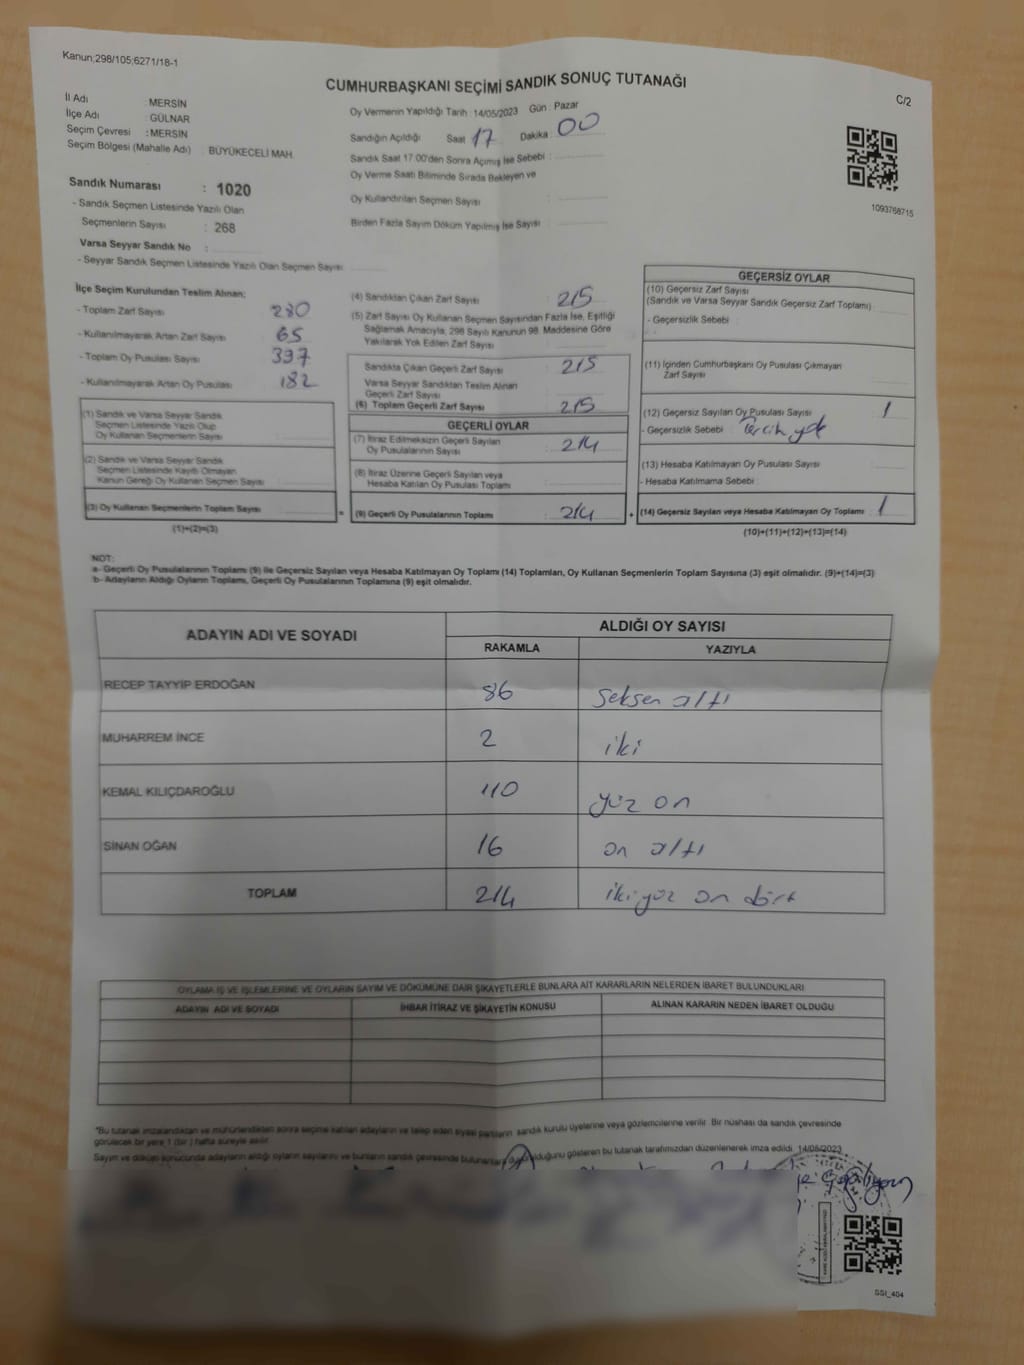 Kanun;298/105;6271/18-1
CUMHURBAŞKANI SEÇİMİ SANDIK SONUÇ TUTANAĞI
C/2
İl Adı : MERSİN
İlçe Adı : GÜLNAR
Seçim Çevresi : MERSİN
Seçim Bölgesi (Mahalle Adı) : BÜYÜKECELİ MAH.
Oy Vermenin Yapıldığı Tarih : 14/05/2023 Gün : Pazar
Sandığın Açıldığı Saat 17 Dakika : 00
Sandık Saat 17:00'den Sonra Açımış İse Sebebi :
Oy Verme Saati Bitiminde Sırada Bekleyen ve
Oy Kullandırılan Seçmen Sayısı :
Birden Fazla Sayım Döküm Yapılmış İse Sayısı :
1093768715
Sandık Numarası : 1020
- Sandık Seçmen Listesinde Yazılı Olan
Seçmenlerin Sayısı : 268
Varsa Seyyar Sandık No :
- Seyyar Sandık Seçmen Listesinde Yazılı Olan Seçmen Sayısı:
İlçe Seçim Kurulundan Teslim Alınan;
- Toplam Zarf Sayısı 280
- Kullanılmayarak Artan Zarf Sayısı : 65
- Toplam Oy Pusulası Sayısı 397
- Kullanılmayarak Artan Oy Pusulası : 182
(1) Sandık ve Varsa Seyyar Sandık
Seçmen Listesinde Yazılı Olup
Oy Kullanan Seçmenlerin Sayısı :
(2) Sandık ve Varsa Seyyar Sandık
Seçmen Listesinde Kayıtlı Olmayan
Kanun Gereği Oy Kullanan Seçmen Sayısı :
(3) Oy Kullanan Seçmenlerin Toplam Sayısı :
(1)+(2)=(3)
(4) Sandıktan Çıkan Zarf Sayısı : 215
(5) Zarf Sayısı Oy Kullanan Seçmen Sayısından Fazla İse, Eşitliği
Sağlamak Amacıyla, 298 Sayılı Kanunun 98. Maddesine Göre
Yakılarak Yok Edilen Zarf Sayısı :
Sandıkta Çıkan Geçerli Zarf Sayısı : 215
Varsa Seyyar Sandıktan Teslim Alınan
Geçerli Zarf Sayısı :
(6) Toplam Geçerli Zarf Sayısı : 215
GEÇERLİ OYLAR
(7) İtiraz Edilmeksizin Geçerli Sayılan
Oy Pusulalarının Sayısı : 214
(8) İtiraz Üzerine Geçerli Sayılan veya
Hesaba Katılan Oy Pusulası Toplamı :
= (9) Geçerli Oy Pusulalarının Toplamı : 214
GEÇERSİZ OYLAR
(10) Geçersiz Zarf Sayısı
(Sandık ve Varsa Seyyar Sandık Geçersiz Zarf Toplamı) :
- Geçersizlik Sebebi :
(11) İçinden Cumhurbaşkanı Oy Pusulası Çıkmayan
Zarf Sayısı :
(12) Geçersiz Sayılan Oy Pusulası Sayısı : 1
- Geçersizlik Sebebi : Tercih yok
(13) Hesaba Katılmayan Oy Pusulası Sayısı :
- Hesaba Katılmama Sebebi :
+ (14) Geçersiz Sayılan veya Hesaba Katılmayan Oy Toplamı : 1
(10)+(11)+(12)+(13)=(14)
NOT:
a- Geçerli Oy Pusulalarının Toplamı (9) ile Geçersiz Sayılan veya Hesaba Katılmayan Oy Toplamı (14) Toplamları, Oy Kullanan Seçmenlerin Toplam Sayısına (3) eşit olmalıdır. (9)+(14)=(3)
b- Adayların Aldığı Oyların Toplamı, Geçerli Oy Pusulalarının Toplamına (9) eşit olmalıdır.
ADAYIN ADI VE SOYADI
ALDIĞI OY SAYISI
RAKAMLA YAZIYLA
RECEP TAYYİP ERDOĞAN 86 seksen altı
MUHARREM İNCE 2 iki
KEMAL KILIÇDAROĞLU 110 yüz on
SİNAN OĞAN 16 on altı
TOPLAM 214 iki yüz on dört
OYLAMA İŞ VE İŞLEMLERİNE VE OYLARIN SAYIM VE DÖKÜMÜNE DAİR ŞİKAYETLERLE BUNLARA AİT KARARLARIN NELERDEN İBARET BULUNDUKLARI
ADAYIN ADI VE SOYADI İHBAR İTİRAZ VE ŞİKAYETİN KONUSU ALINAN KARARIN NEDEN İBARET OLDUĞU
*Bu tutanak imzalandıktan ve mühürlendikten sonra seçime katılan adayların ve talep eden siyasi partilerin sandık kurulu üyelerine veya gözlemcilerine verilir. Bir nüshası da sandık çevresinde
görülecek bir yere 1 (bir ) hafta süreyle asılır.
Sayım ve döküm sonucunda adayların aldığı oyların sayılarını ve bunların sandık çevresinde bulunanlara duyurulduğunu gösteren bu tutanak tarafımızdan düzenlenerek imza edildi. 14/05/2023
SSI_404